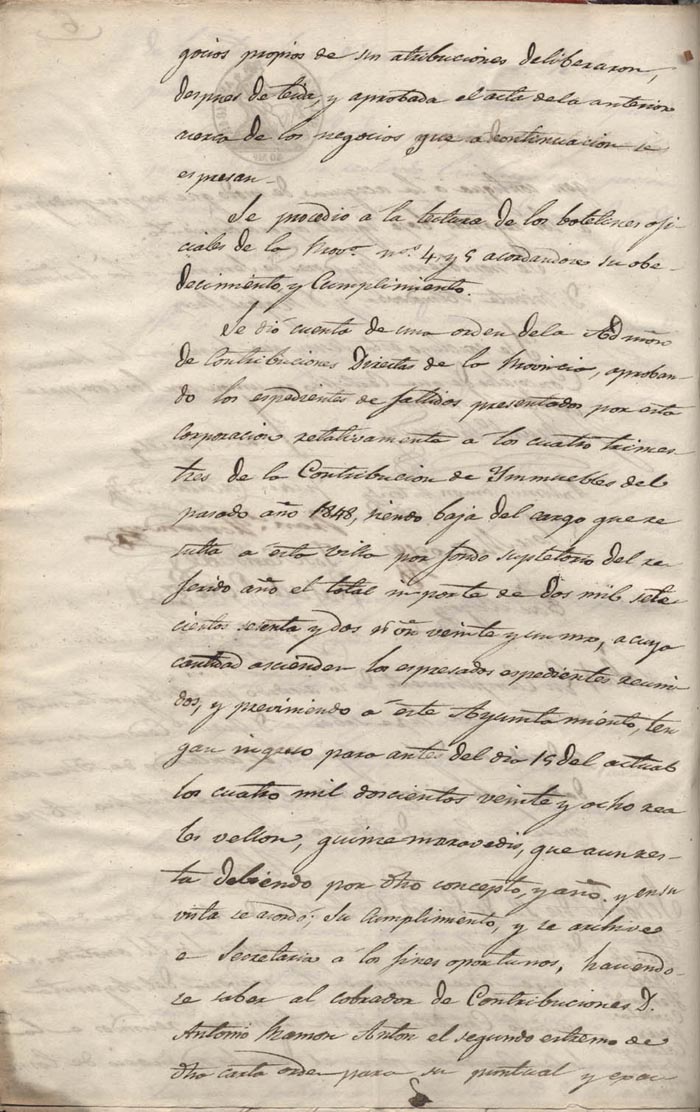 gocios propios de sus atribuciones deliberaron,
despues de leida, y aprobada el acta dela anterior
acerca de los negocios que a continuacion se
espresan.
Se procedió a la lectura de los boletines ofi-
ciales de la Prova. nos. 4, y 5 acordandose su obe-
decimiento, y Cumplimiento.
Se dió cuenta de una orden dela Admon
de Contribuciones Directas de la Provincia, aproban-
do los espedientes de fallidos presentados por esta
Corporacion relativamente a los cuatro trimes-
tres de la Contribucion de Ynmuebles del
pasado año 1848, siendo baja del cargo que re-
sulta a esta villa por fondo supletorio del re-
ferido año el total importe de dos mil sete-
cientos sesenta y dos rs. von veinte y un mrs, a cuya
cantidad ascienden los espresados espedientes reuni-
dos, y previniendo a este Ayuntamiento, ten-
gan ingreso para antes del dia 15 del actual
los cuatro mil doscientos veinte y ocho rea-
les vellon, quince maravedis, que aun res-
ta debiendo por otro concepto, y año. y en su
vista se acordó; su Cumplimento, y se archive
e Secretaria á los fines oportunos, haciendo-
se saber al cobrador de Contribuciones D.
Antonio Ramon Anton el segundo estremo de
dha carta orden para su puntual y